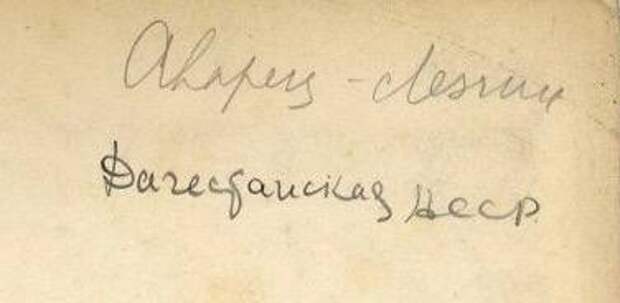 Аварец - Лезгин
Дагестанская АССР